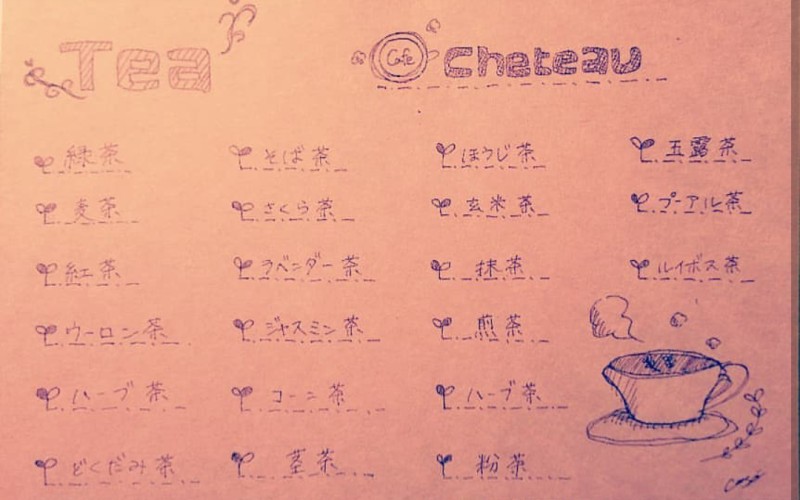 Tea
Cafe
Cheteau
緑茶
そば茶
ほうじ茶
玉露茶
麦茶
さくら茶
玄米茶
プーアル茶
紅茶
ラベンダー茶
抹茶
ルイボス茶
ウーロン茶
ジャスミン茶
煎茶
ハーブ茶
コーン茶
ハーブ茶
どくだみ茶
茎茶
粉茶